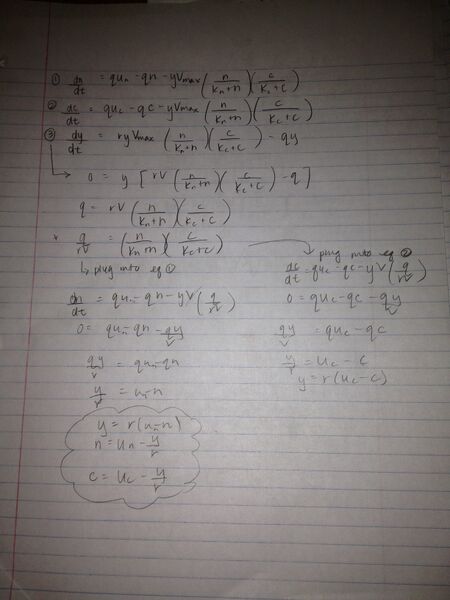 ① dn/dt = qu_n - qn - yVmax (n/(K_n+n))(c/(K_c+c))
② dc/dt = qu_c - qc - yVmax (n/(K_n+n))(c/(K_c+c))
③ dy/dt = ryVmax (n/(K_n+n))(c/(K_c+c)) - qy
0 = y [rV (n/(K_n+n))(c/(K_c+c)) - q]
q = rV (n/(K_n+n))(c/(K_c+c))
* q/rV = (n/(K_n+n))(c/(K_c+c))
↳ plug into eq ①
dn/dt = qu_n - qn - yV (q/rV)
0 = qu_n - qn - qy/r
qy/r = qu_n - qn
y/r = u_n - n
y = r(u_n - n)
n = u_n - y/r
c = u_c - y/r
plug into eq ②
dc/dt = qu_c - qc - yV (q/rV)
0 = qu_c - qc - qy/r
qy/r = qu_c - qc
y/r = u_c - c
y = r(u_c - c)